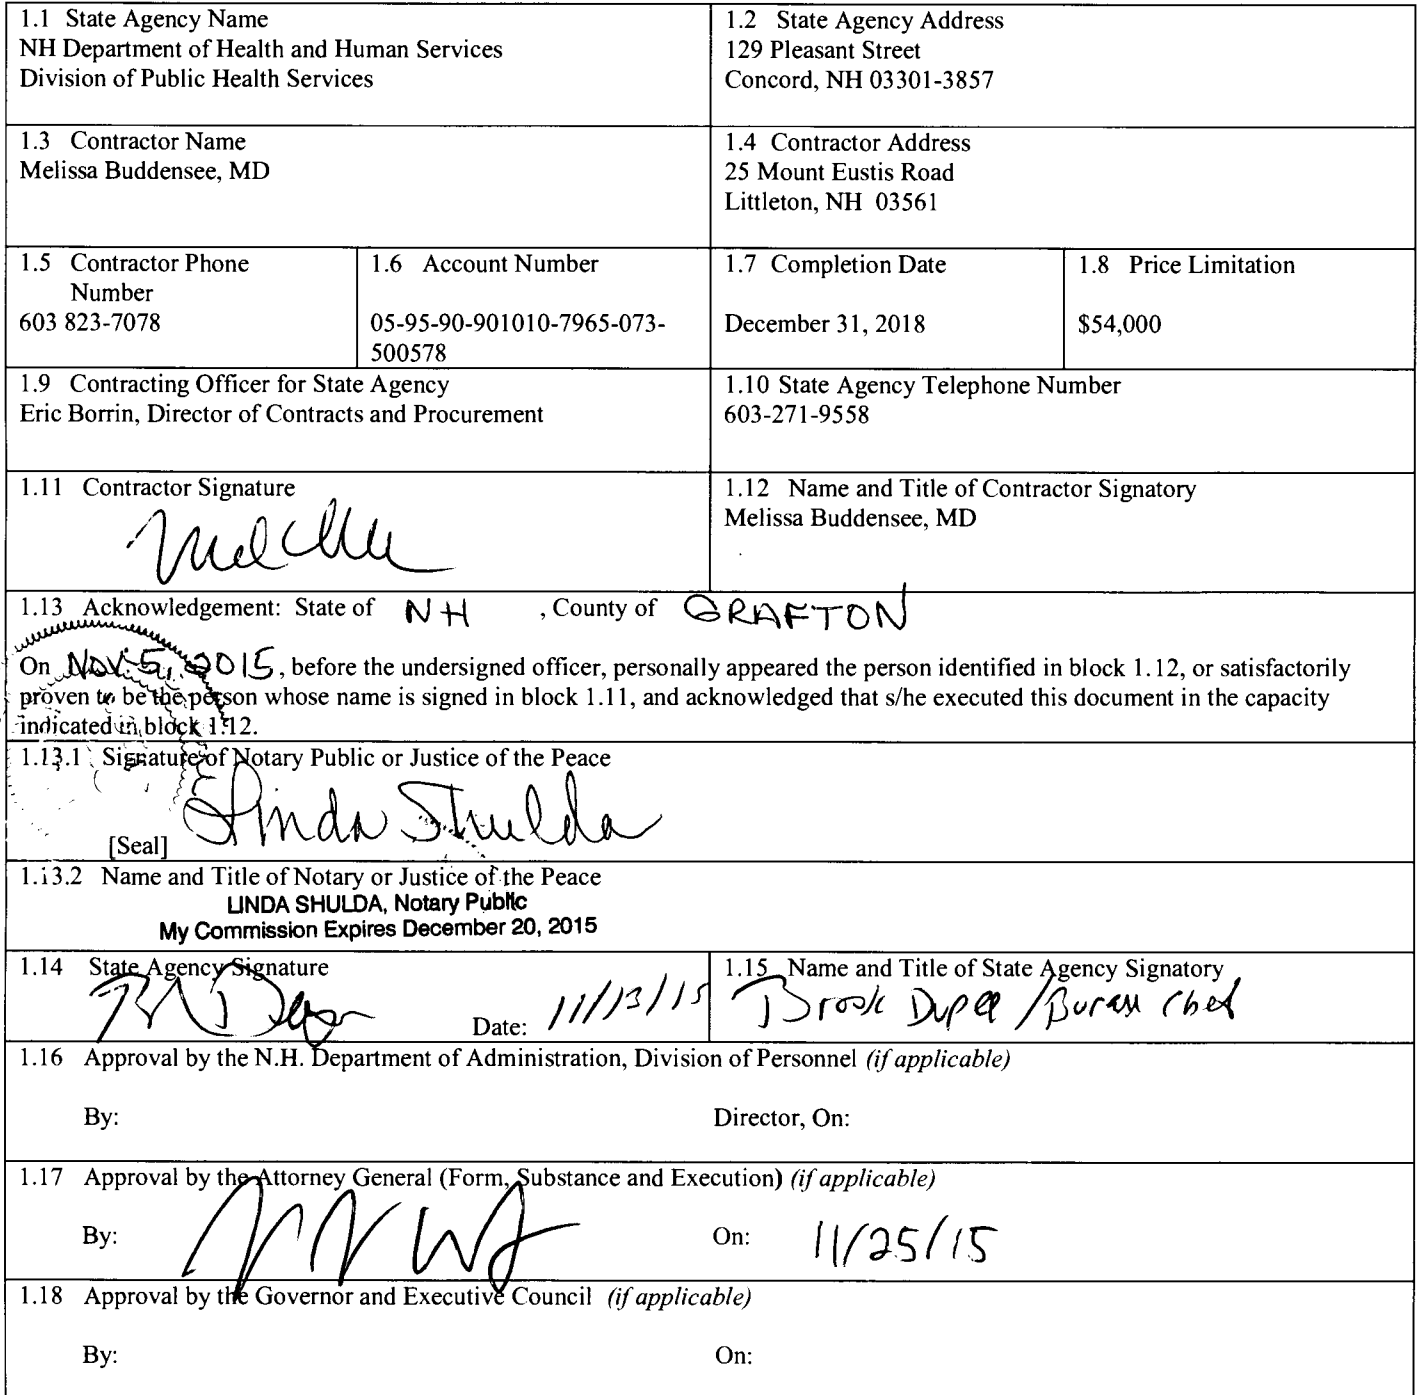 1.1 State Agency Name
NH Department of Health and Human Services
Division of Public Health Services
1.2 State Agency Address
129 Pleasant Street
Concord, NH 03301-3857
1.3 Contractor Name
Melissa Buddensee, MD
1.4 Contractor Address
25 Mount Eustis Road
Littleton, NH 03561
1.5 Contractor Phone
Number
603 823-7078
1.6 Account Number
05-95-90-901010-7965-073-
500578
1.7 Completion Date
December 31, 2018
1.8 Price Limitation
$54,000
1.9 Contracting Officer for State Agency
Eric Borrin, Director of Contracts and Procurement
1.10 State Agency Telephone Number
603-271-9558
1.11 Contractor Signature
1.12 Name and Title of Contractor Signatory
Melissa Buddensee, MD
1.13 Acknowledgement: State of NH , County of GRAFTON
On NOV. 5, 2015, before the undersigned officer, personally appeared the person identified in block 1.12, or satisfactorily
proven to be the person whose name is signed in block 1.11, and acknowledged that s/he executed this document in the capacity
indicated in block 1.12.
1.13.1 Signature of Notary Public or Justice of the Peace
Linda Shulda
[Seal]
1.13.2 Name and Title of Notary or Justice of the Peace
LINDA SHULDA, Notary Public
My Commission Expires December 20, 2015
1.14 State Agency Signature
Date: 11/13/15
1.15 Name and Title of State Agency Signatory
Brook Dupee / Bureau Chief
1.16 Approval by the N.H. Department of Administration, Division of Personnel (if applicable)
By: Director, On:
1.17 Approval by the Attorney General (Form, Substance and Execution) (if applicable)
By: On: 11/25/15
1.18 Approval by the Governor and Executive Council (if applicable)
By: On: